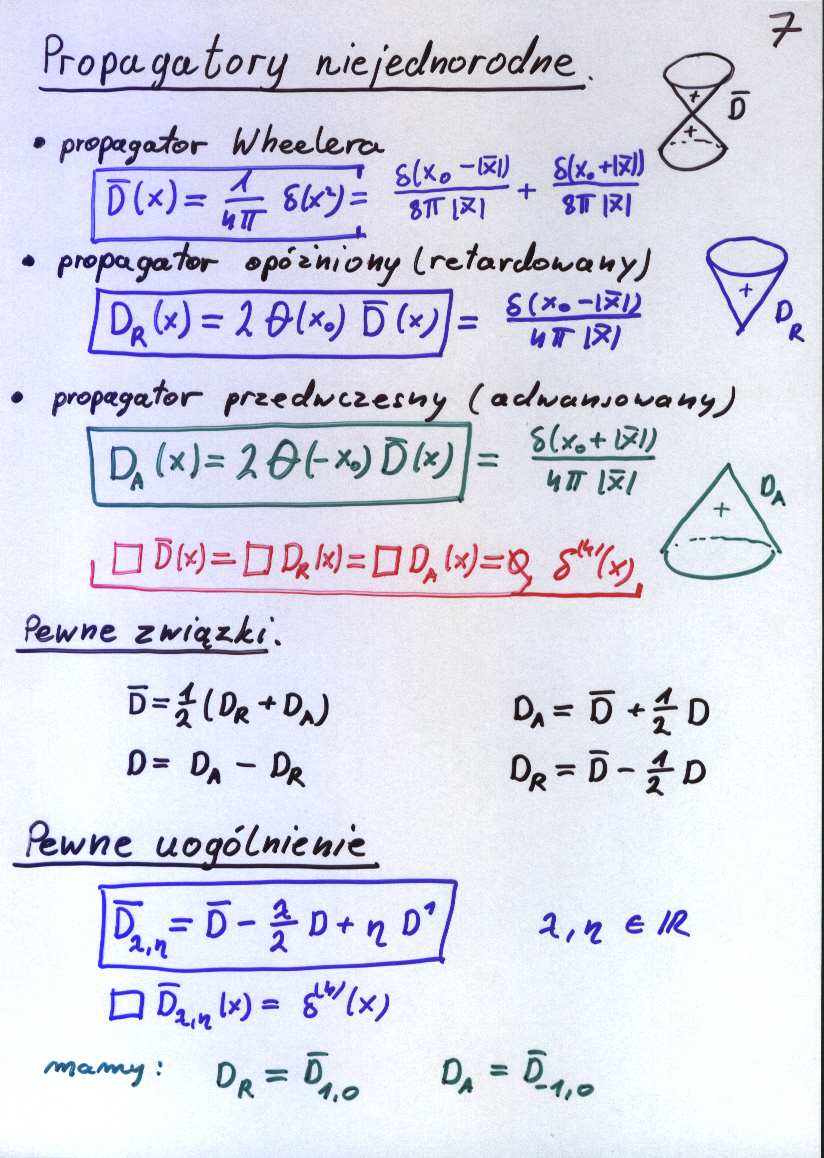 7
Propagatory niejednorodne.
• propagator Wheelera
D̄(x) = 1/4π δ(x²) = δ(x₀ - |x̄|)/8π |x̄| + δ(x₀ + |x̄|)/8π |x̄|
D̄
+
+
• propagator opóźniony (retardowany)
D_R(x) = 2 θ(x₀) D̄(x) = δ(x₀ - |x̄|)/4π |x̄|
+
D_R
• propagator przedwczesny (adwansowany)
D_A(x) = 2 θ(-x₀) D̄(x) = δ(x₀ + |x̄|)/4π |x̄|
+
D_A
□ D̄(x) = □ D_R(x) = □ D_A(x) = δ⁽⁴⁾(x)
Pewne związki.
D̄ = 1/2 (D_R + D_A) D_A = D̄ + 1/2 D
D = D_A - D_R D_R = D̄ - 1/2 D
Pewne uogólnienie
D̄_λ,η = D̄ - λ/2 D + η D¹ λ, η ∈ ℝ
□ D̄_λ,η(x) = δ⁽⁴⁾(x)
mamy: D_R = D̄_1,0 D_A = D̄_-1,0